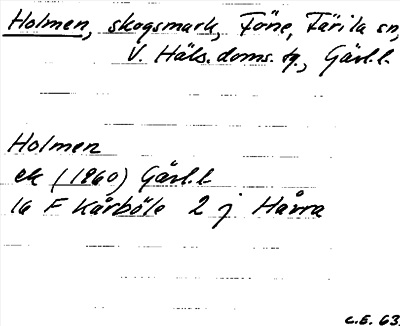 Holmen, skogsmark, Föne, Färila sn,
V. Häls. doms. tg., Gävl.l.
Holmen
ek (1960) Gävl.l.
16 F Kårböle 2 j Hårra
C.E. 63.